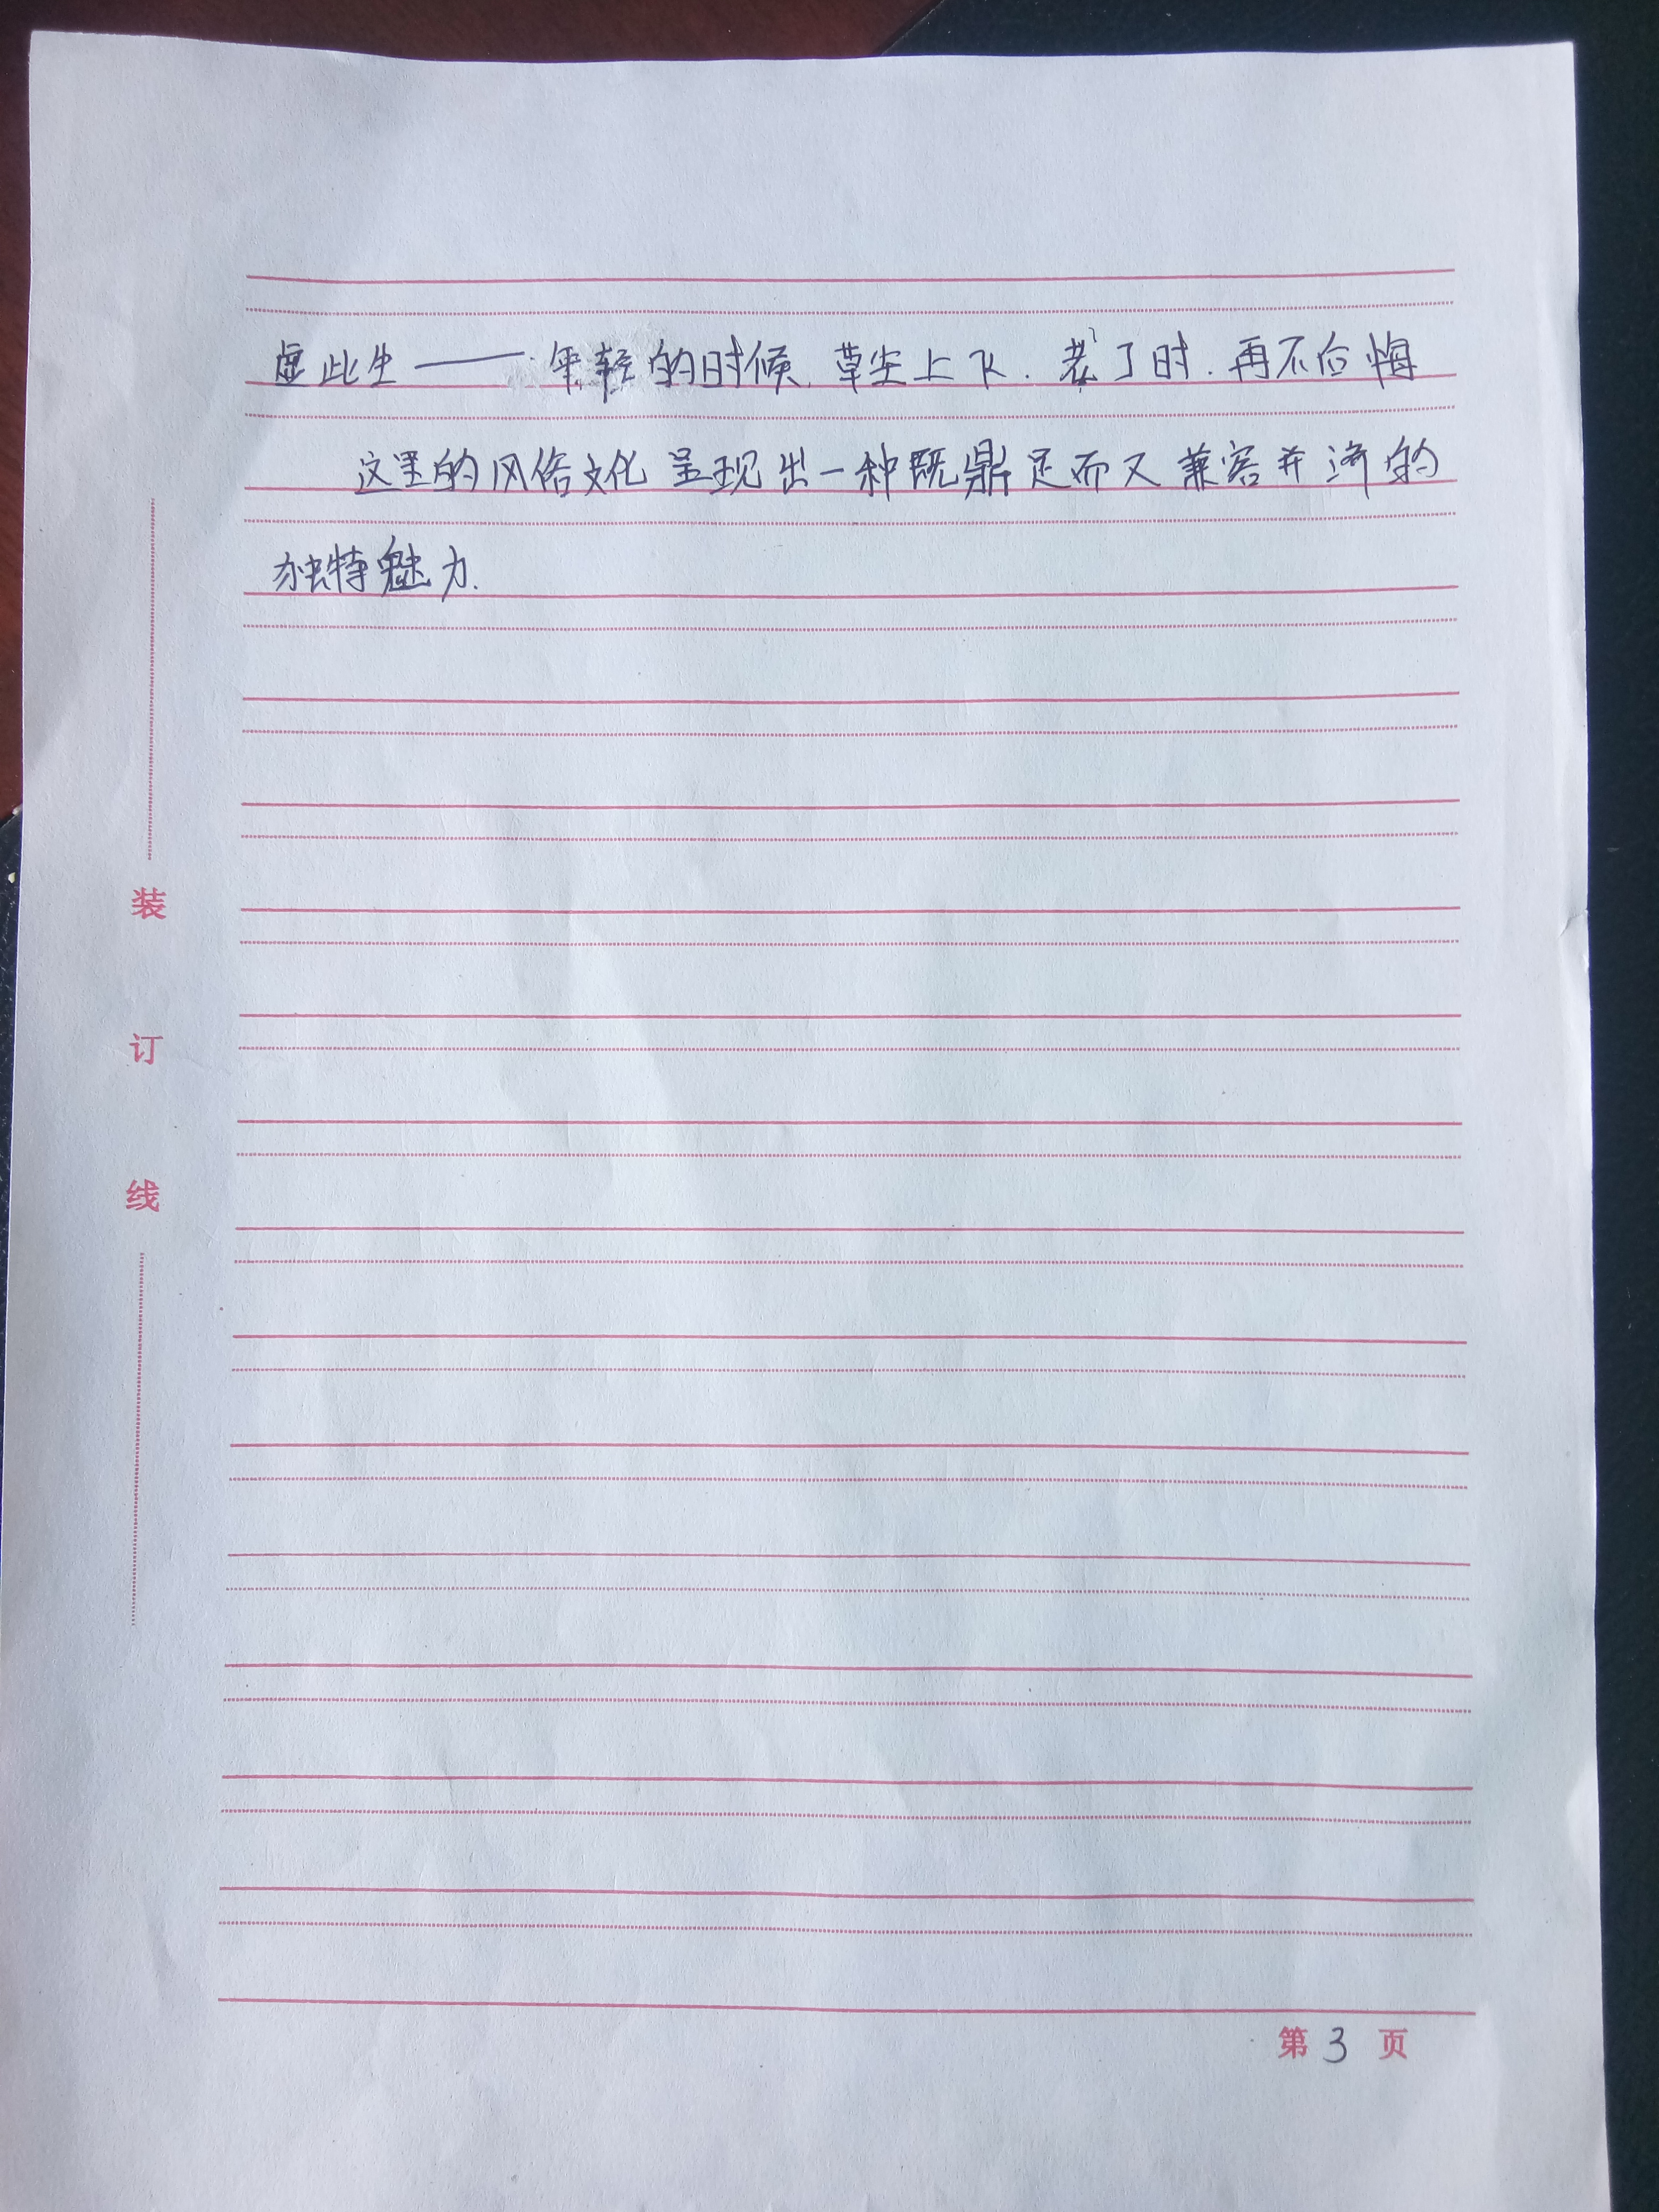 虚此生——年轻的时候.草尖上飞.老了时.再不后悔
这里的风俗文化呈现出一种既鼎足而又兼容并济的
独特魅力.
装
订
线
第3页